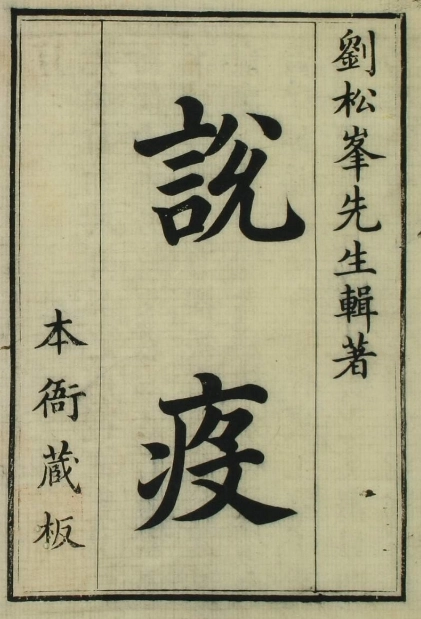 劉松峯先生輯著
說疫
本衙藏板